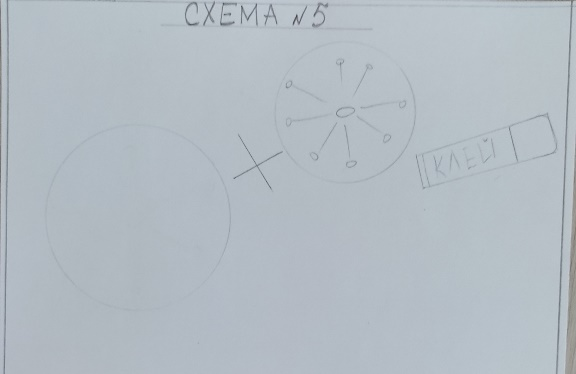 СХЕМА №5
КЛЕЙ